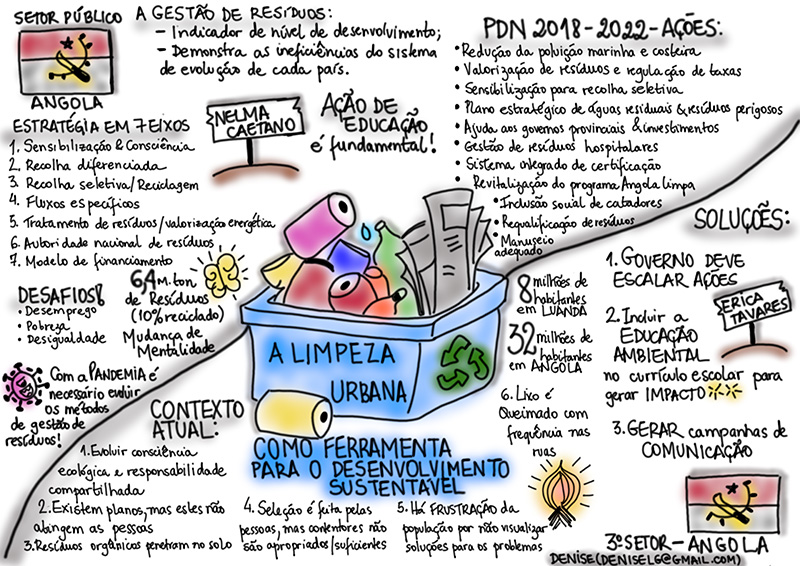 SETOR PÚBLICO
ANGOLA
A GESTÃO DE RESÍDUOS:
- Indicador de nível de desenvolvimento;
- Demonstra as ineficiências do sistema
de evolução de cada país.
NELMA
CAETANO
AÇÃO DE
EDUCAÇÃO
é fundamental!
ESTRATÉGIA EM 7 EIXOS
1. Sensibilização & Consciência
2. Recolha diferenciada
3. Recolha seletiva/Reciclagem
4. Fluxos específicos
5. Tratamento de resíduos/valorização energética
6. Autoridade nacional de resíduos
7. Modelo de financiamento
DESAFIOS!
• Desemprego
• Pobreza
• Desigualdade
6,4 M. ton
de Resíduos
(10% reciclado)
MUDANÇA DE
MENTALIDADE
Com a PANDEMIA é
necessário evoluir
os métodos
de gestão de
resíduos!
PDN 2018-2022-AÇÕES:
• Redução da poluição marinha e costeira
• Valorização de resíduos e regulação de taxas
• Sensibilização para recolha seletiva
• Plano estratégico de águas residuais & resíduos perigosos
• Ajuda aos governos provinciais & investimentos
• Gestão de resíduos hospitalares
• Sistema integrado de certificação
• Revitalização do programa Angola limpa
• Inclusão social de catadores
• Requalificação de resíduos
• Manuseio
adequado
A LIMPEZA
URBANA
COMO FERRAMENTA
PARA O DESENVOLVIMENTO
SUSTENTÁVEL
8 milhões de
habitantes
em LUANDA
32 milhões de
habitantes
em ANGOLA
CONTEXTO
ATUAL:
1. Evoluir consciência
ecológica e responsabilidade
compartilhada
2. Existem planos, mas estes não
abingem as pessoas
3. Resíduos orgânicos penetram no solo
4. Seleção é feita pelas
pessoas, mas contentores não
são apropriados/suficientes
5. Há FRUSTRAÇÃO da
população por não visualizar
soluções para os problemas
6. Lixo é
Queimado com
frequência nas
ruas
SOLUÇÕES:
1. GOVERNO DEVE
ESCALAR AÇÕES
2. Incluir a
EDUCAÇÃO
AMBIENTAL
no currículo escolar para
gerar IMPACTO
ERICA
TAVARES
3. GERAR campanhas de
COMUNICAÇÃO
3º SETOR - ANGOLA
DENISE (DENISELG@GMAIL.COM)